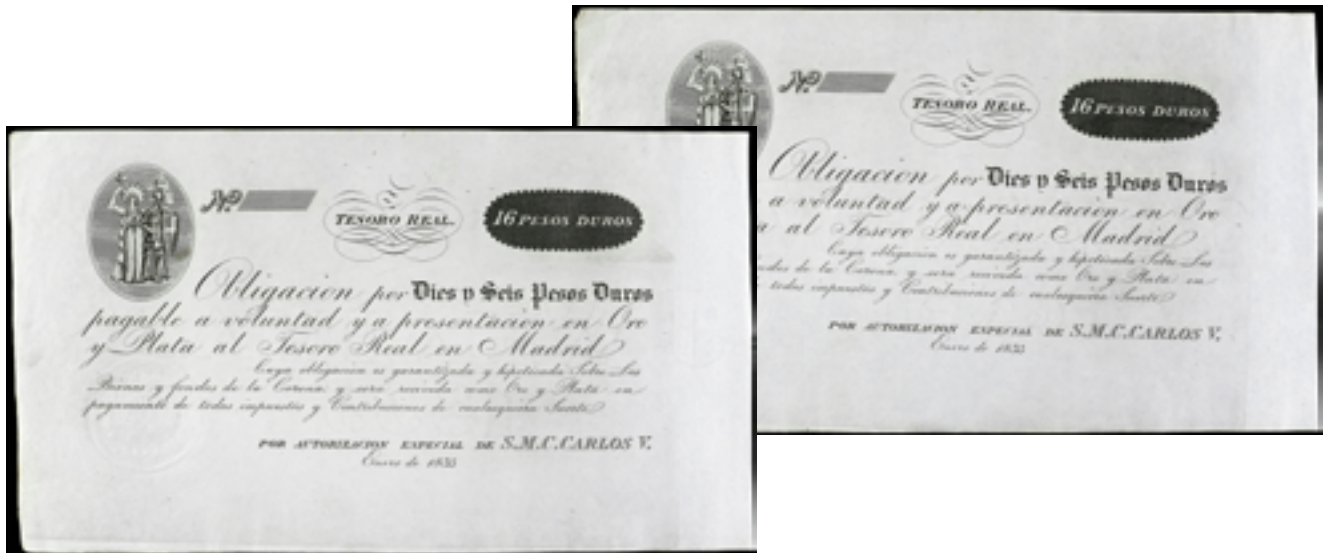 Nº.
TESORO REAL.
16 PESOS DUROS
Obligacion por Dies y Seis Pesos Duros
pagable a voluntad y a presentacion en Oro
y Plata al Tesoro Real en Madrid
Cuya obligacion es garantizada y hipoticada Sobre Los
Bienes y fondos de la Corona, y sera recivida como Oro y Plata en
pagamiento de todos impuestos y Contribuciones de cualesquiera Suerte
POR AUTORIZACION ESPECIAL DE S.M.C.CARLOS V.
Enero de 1835
Nº.
TESORO REAL.
16 PESOS DUROS
Obligacion por Dies y Seis Pesos Duros
a voluntad y a presentacion en Oro
al Tesoro Real en Madrid
Cuya obligacion es garantizada y hipoticada Sobre Los
fondos de la Corona, y sera recivida como Oro y Plata en
todos impuestos y Contribuciones de cualesquiera Suerte
POR AUTORIZACION ESPECIAL DE S.M.C.CARLOS V.
Enero de 1835